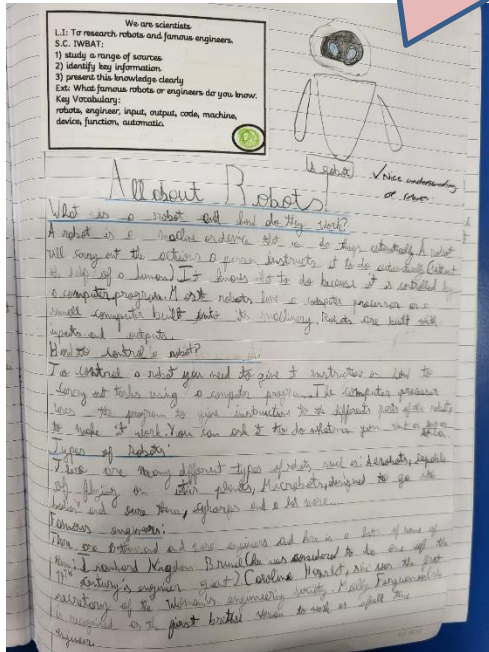 We are scientists
L.I: To research robots and famous engineers.
S.C. IWBAT:
1) study a range of sources
2) identify key information
3) present this knowledge clearly
Ext: What famous robots or engineers do you know.
Key Vocabulary:
robots, engineer, input, output, code, machine,
device, function, automatic.
A robot
✓ Nice understanding
of
All about Robots!
What is a robot and how do they work?
A robot is a machine or device that is do things automatically. A robot
will carry out the actions a person instructs it to do automatically (without
the help of a human). It knows what to do because it is controlled by
a computer program. Most robots have a computer processor or a
small computer built into its machinery. Robots are built with
inputs and outputs.
How to control a robot?
To control a robot you need to give it instructions on how to
carry out tasks using a computer program. The computer processor
uses the program to give instructions to the different parts of the robots
to make it work. You can ask it to do whatever you
Types of robots:
There are many different types of robots such as: Aerobots, capable
of flying on other planets, Microbots, designed to go into
bodies and cure them, cyborgs and a lot more...
Famous engineers:
There are a thousand and more engineers and here is a list of some of
them: 1. Isambard Kingdom Brunel (he was considered to be one of the
19th century's engineer giant) 2. Caroline Haslet, she was the first
secretary of the Women's engineering society. Molly Fergusson (she
is recognised as the first british woman to work as a full time
engineer.